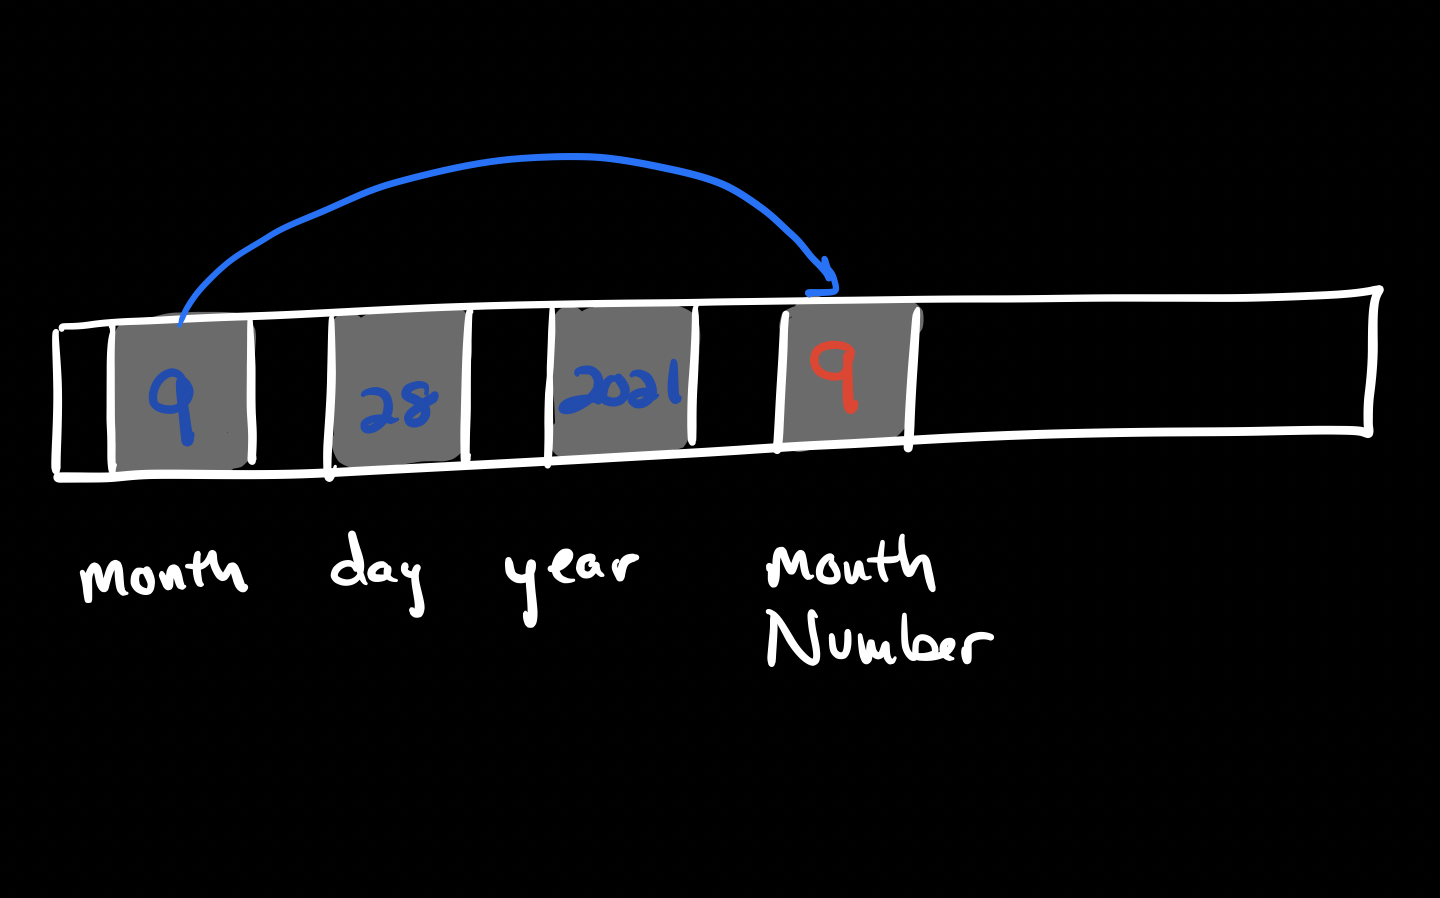 9 28 2021 9
month day year Month
Number